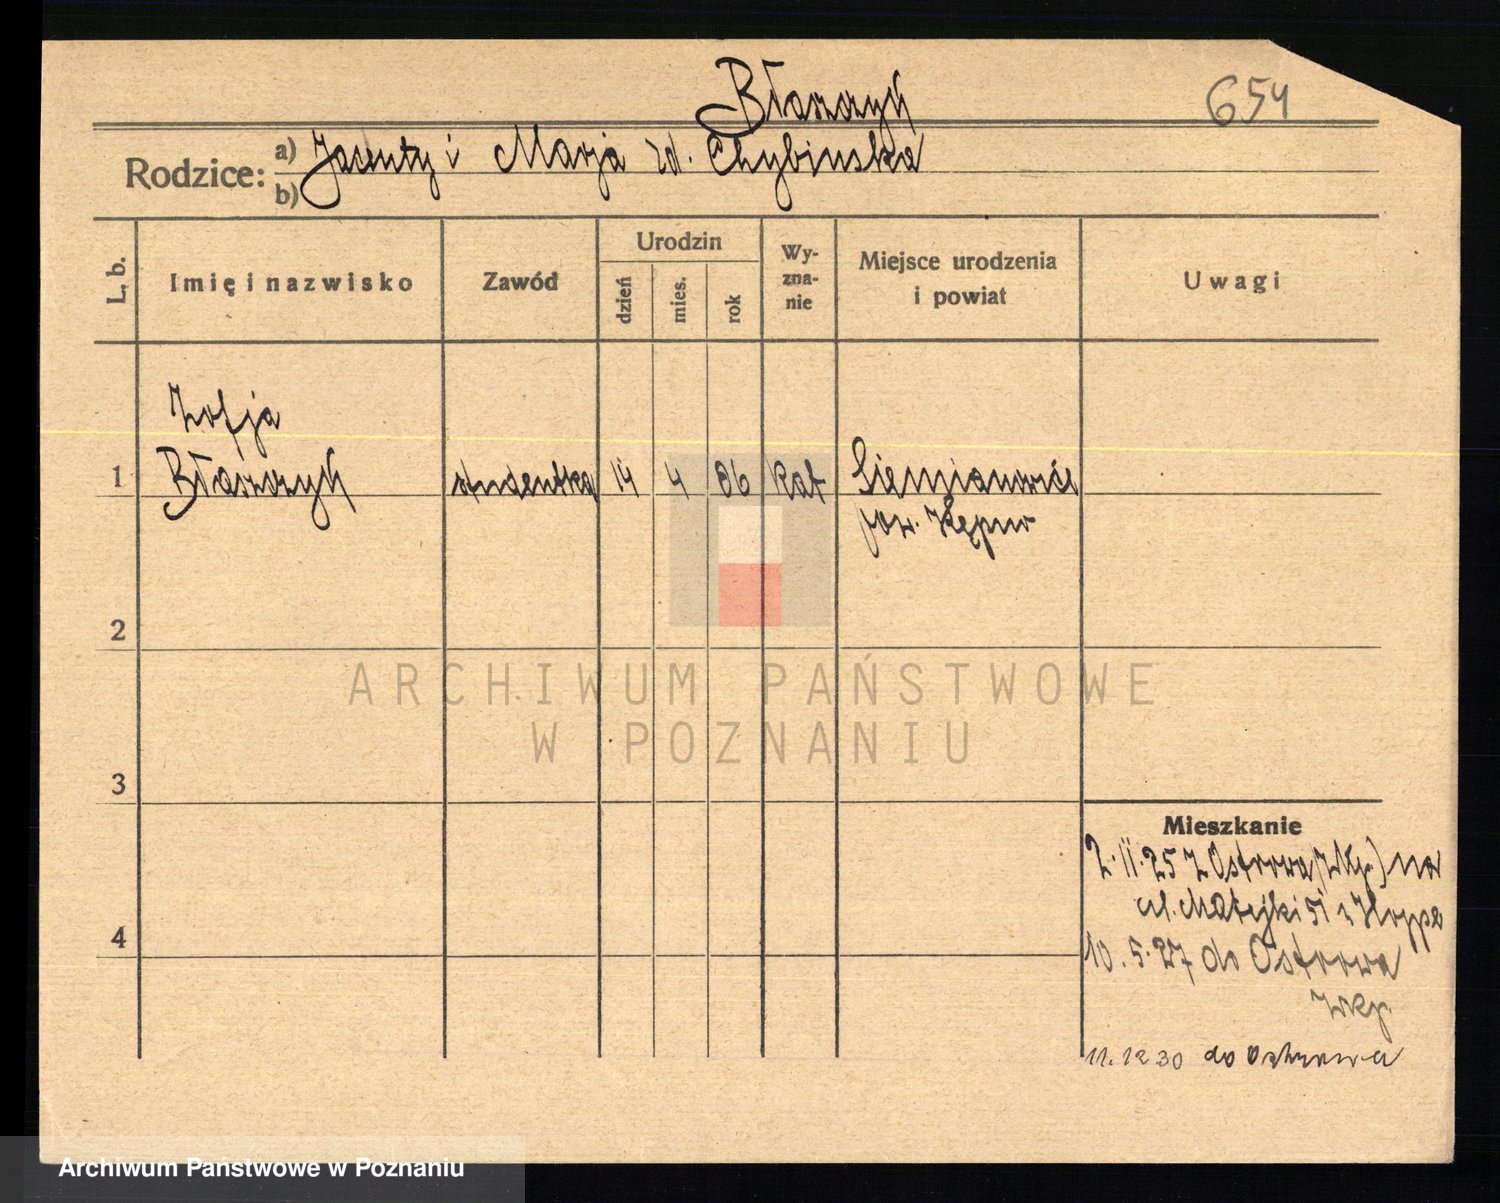 Błaszczyk
654
Rodzice:
a) Jacenty i Marja zd. Chybinska
b)
L. b.
Imię i nazwisko
Zawód
Urodzin
dzień
mies.
rok
Wy-
zna-
nie
Miejsce urodzenia
i powiat
Uwagi
Zofja
1 Błaszczyk studentka 14 4 06 kat Siemianowice
pow. Kępno
2
3
4
Mieszkanie
2.II.25 z Ostrowa (Wkp.) na
ul. Matejki 51 u Hoppe
10.5.27 do Ostrowa
Wkp.
11.12 30 do Ostrowa
ARCHIWUM PAŃSTWOWE
W POZNANIU
Archiwum Państwowe w Poznaniu